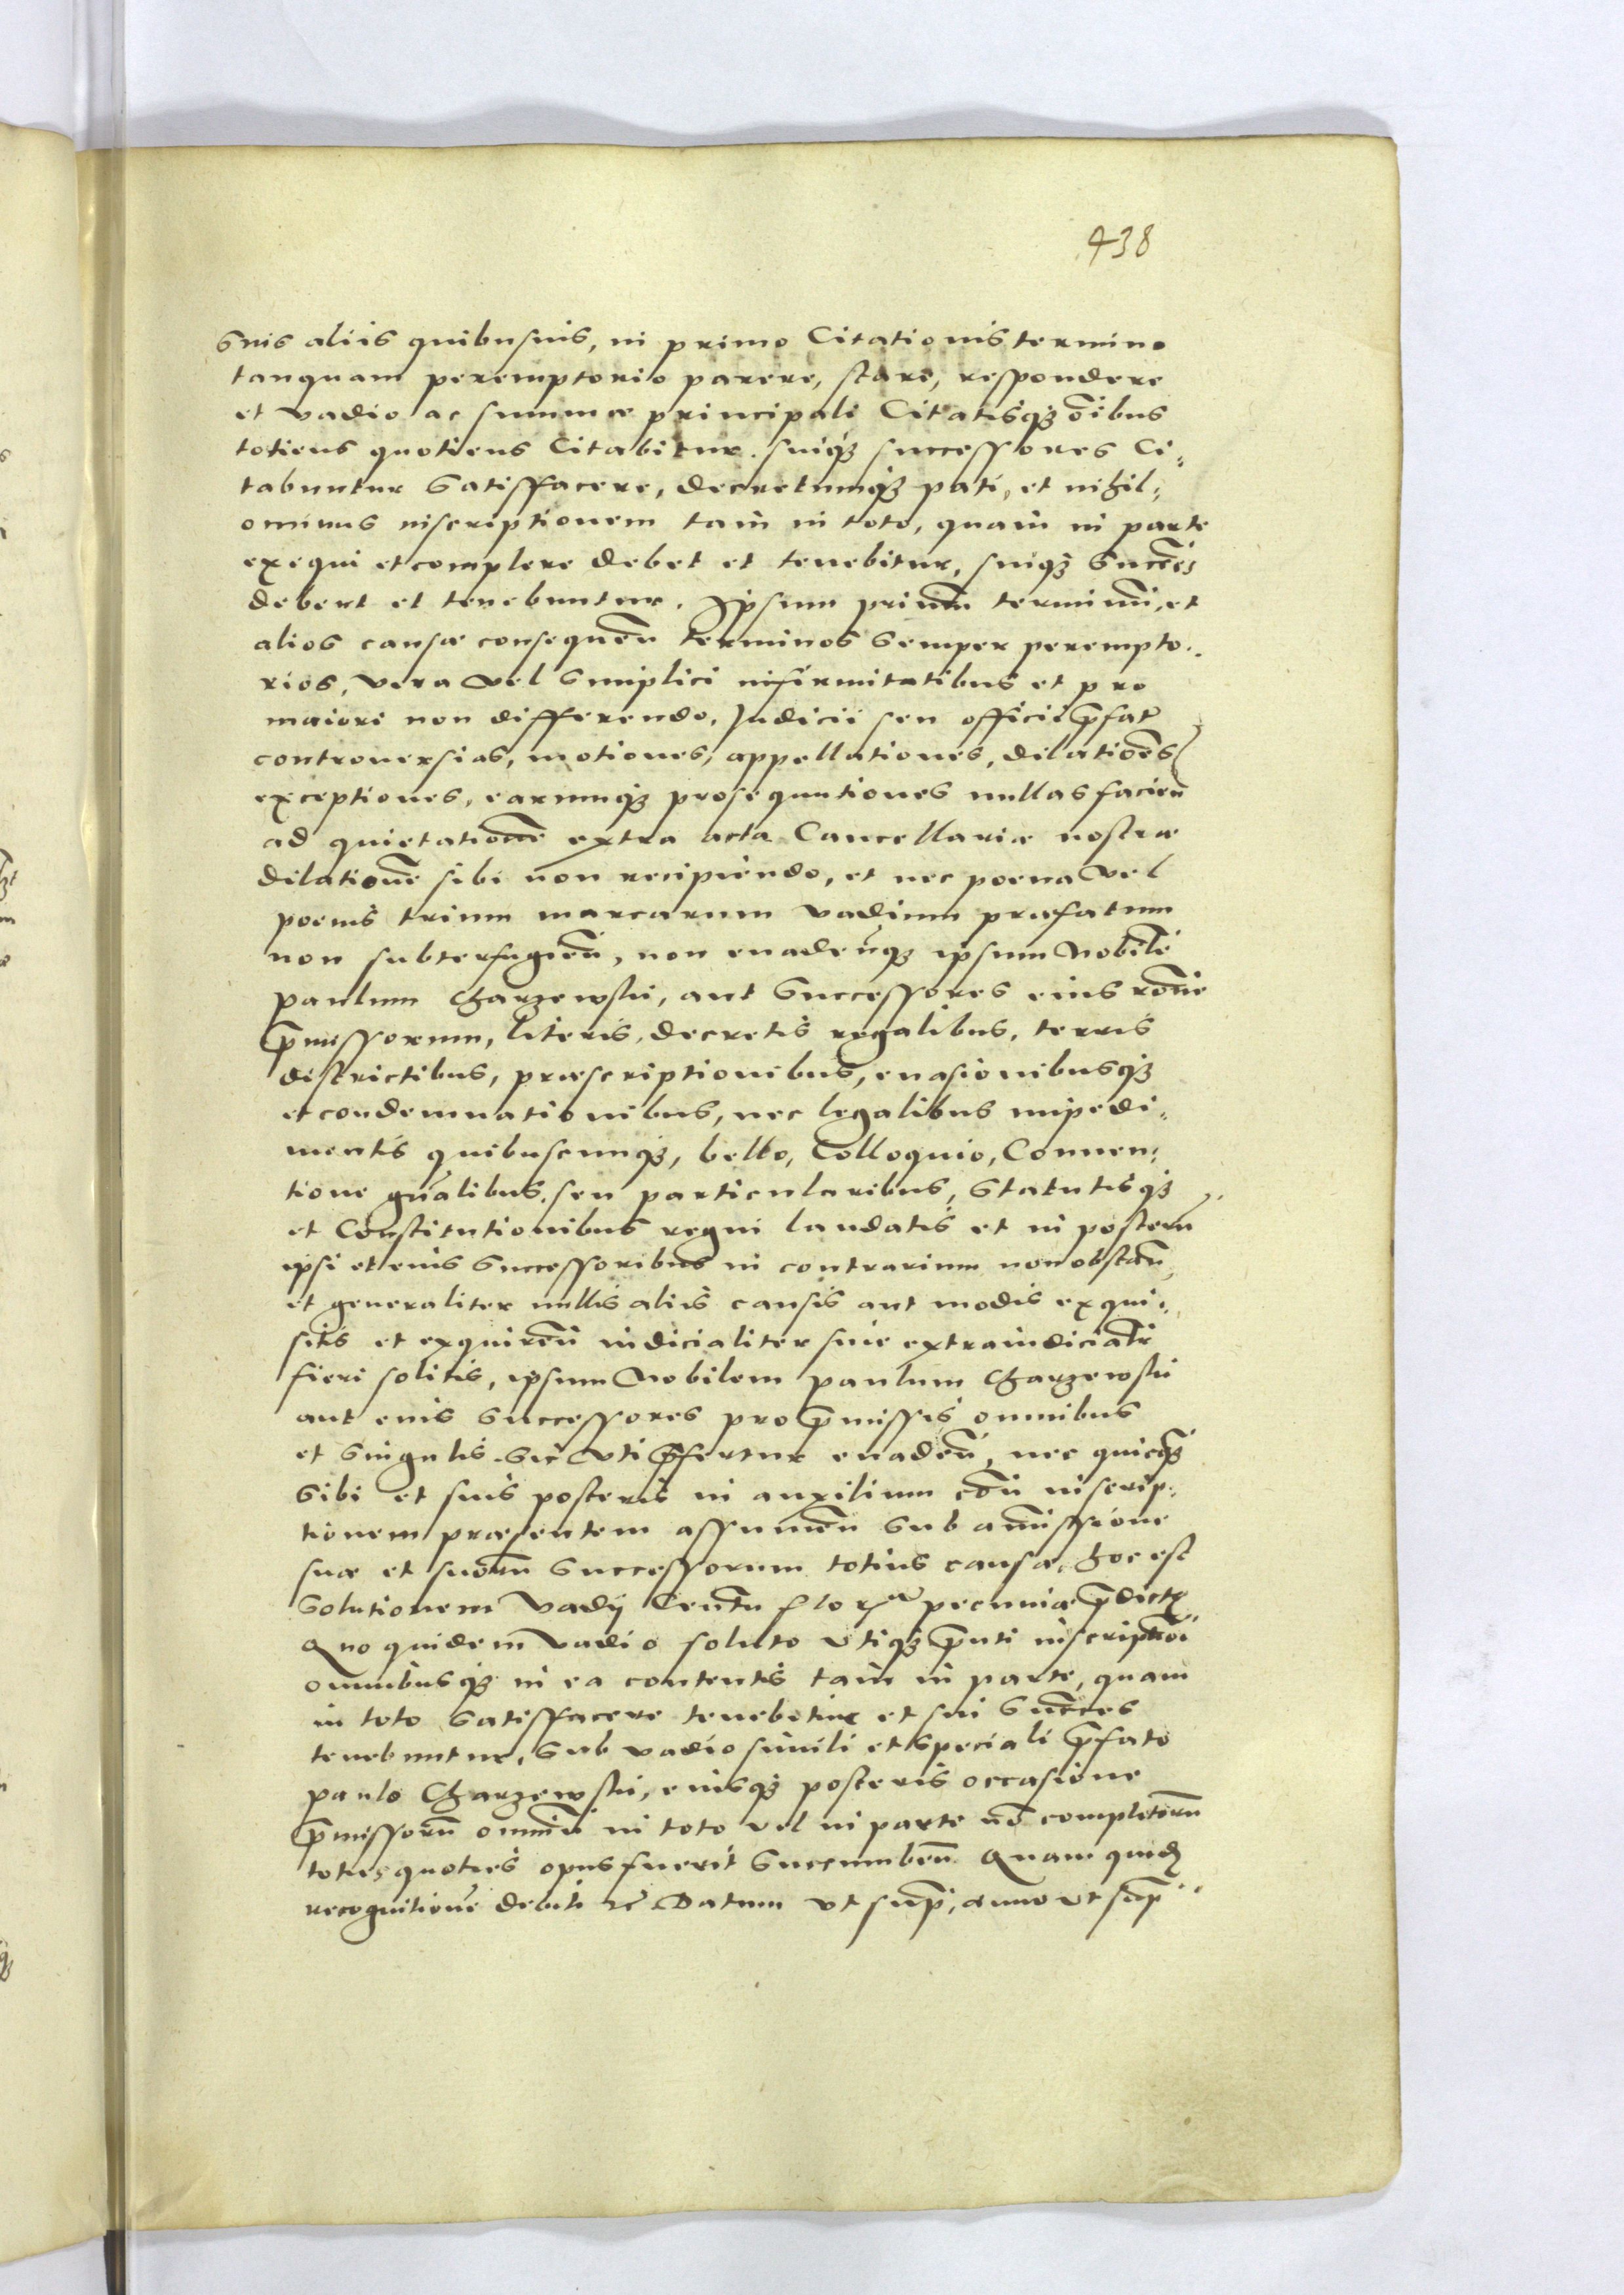 438
suis aliis quibusuis, in primo Citationis termino
tanquam peremptorio parere, stare, respondere
et vadio ac summæ principali Citatisq3 oībus
totiens quotiens Citabitur. suiq3 successores Ci-
tabuntur satisffacere, decretumq3 pati, et nihil-
ominus inscriptionem tam in toto, quam in parte
exequi et complere debet et tenebitur, suiq3 succēs
debent et tenebuntur. Ipsum primū terminū, et
alios causæ consequēn terminos semper perempto-
rios, vera vel simplici infirmitatibus et pro
maiori non differendo. Judicii seu officii p̄fat
controuersias, motiones, appellationes, dilatiōes
exceptiones, earumq3 prosequutiones nullas facien̄
ad quietationē extra acta Cancellariæ nostræ
dilationē sibi non recipiendo, et nec poena vel
poenis trium marcarum vadium præfatum
non subterfugien̄, non euaden̄q3 ipsum Nobilē
paulum Gharzewski, aut successores eius rōne
p̄missorum, literis, decretis regalibus, terris
districtibus, præscriptionibus, euasionibusq3
et condemnationibus, nec legalibus impedi-
mentis quibuscunq3, bello, Colloquio, Conuen-
tione gn̄alibus, seu particularibus, statutisq3
et Constitutionibus regni laudatis et in posterū
ipsi et eius successoribus in contrarium non obstan̄,
et generaliter nullis aliis causis aut modis exqui-
sitis et exquiren̄ iudicialiter siue extraiudicialr̄
fieri solitis, ipsum Nobilem paulum Gharzewski
aut eius successores pro p̄missis omnibus
et singulis sic vti p̄fertur euaden̄, nec quicq3
sibi et suis posteris in auxilium cōn inscrip-
tionem præsentem assumen̄ sub amissione
suæ et suorū successorum totius causæ, hoc est
solutionem vadij Centū flor pecuniæ p̄dictæ
Quo quidem vadio soluto vtiq3 p̄nti inscriptiōi
omnibusq3 in ea contentis tam in parte, quam
in toto satisffacere tenebitur et sui succēs
tenebuntur, sub vadio simili et speciali p̄fato
paulo Gharzewski, eiusq3 posteris occasione
p̄missorū omniū in toto vel in parte nō completorū
toties quoties opus fuerit succumben̄ Quam quidē
recognitionē debiti etc Datum vt sup̄, anno vt sup̄